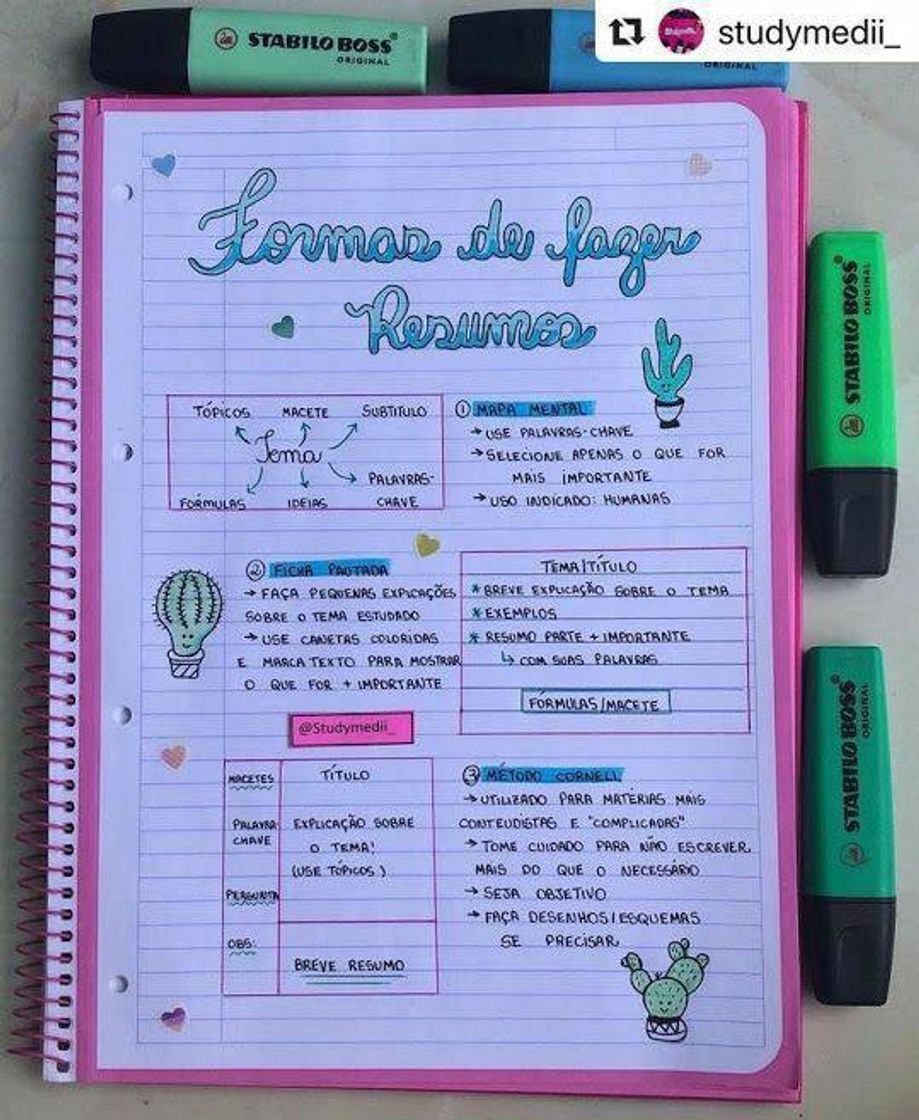 STABILO BOSS
ORIGINAL
ORIGINAL
studymedii_
Formas de fazer
Resumos
TÓPICOS MACETE SUBTITULO
Tema
PALAVRAS-
FÓRMULAS IDEIAS CHAVE
① MAPA MENTAL
→ USE PALAVRAS-CHAVE
→ SELECIONE APENAS O QUE FOR
MAIS IMPORTANTE
→ USO INDICADO: HUMANAS
② FICHA PAUTADA
→ FAÇA PEQUENAS EXPLICAÇÕES
SOBRE O TEMA ESTUDADO
→ USE CANETAS COLORIDAS
E MARCA TEXTO PARA MOSTRAR
O QUE FOR + IMPORTANTE
TEMA/TÍTULO
* BREVE EXPLICAÇÃO SOBRE O TEMA
* EXEMPLOS
* RESUMO PARTE + IMPORTANTE
↳ COM SUAS PALAVRAS
FÓRMULAS/MACETE
@Studymedii_
MACETES
PALAVRA-
CHAVE
PERGUNTA
OBS:
TÍTULO
EXPLICAÇÃO SOBRE
O TEMA!
(USE TÓPICOS)
BREVE RESUMO
③ MÉTODO CORNELL
→ UTILIZADO PARA MATÉRIAS MAIS
CONTEUDISTAS E "COMPLICADAS"
→ TOME CUIDADO PARA NÃO ESCREVER
MAIS DO QUE O NECESSÁRIO
→ SEJA OBJETIVO
→ FAÇA DESENHOS/ESQUEMAS
SE PRECISAR
STABILO BOSS
ORIGINAL
STABILO BOSS
ORIGINAL